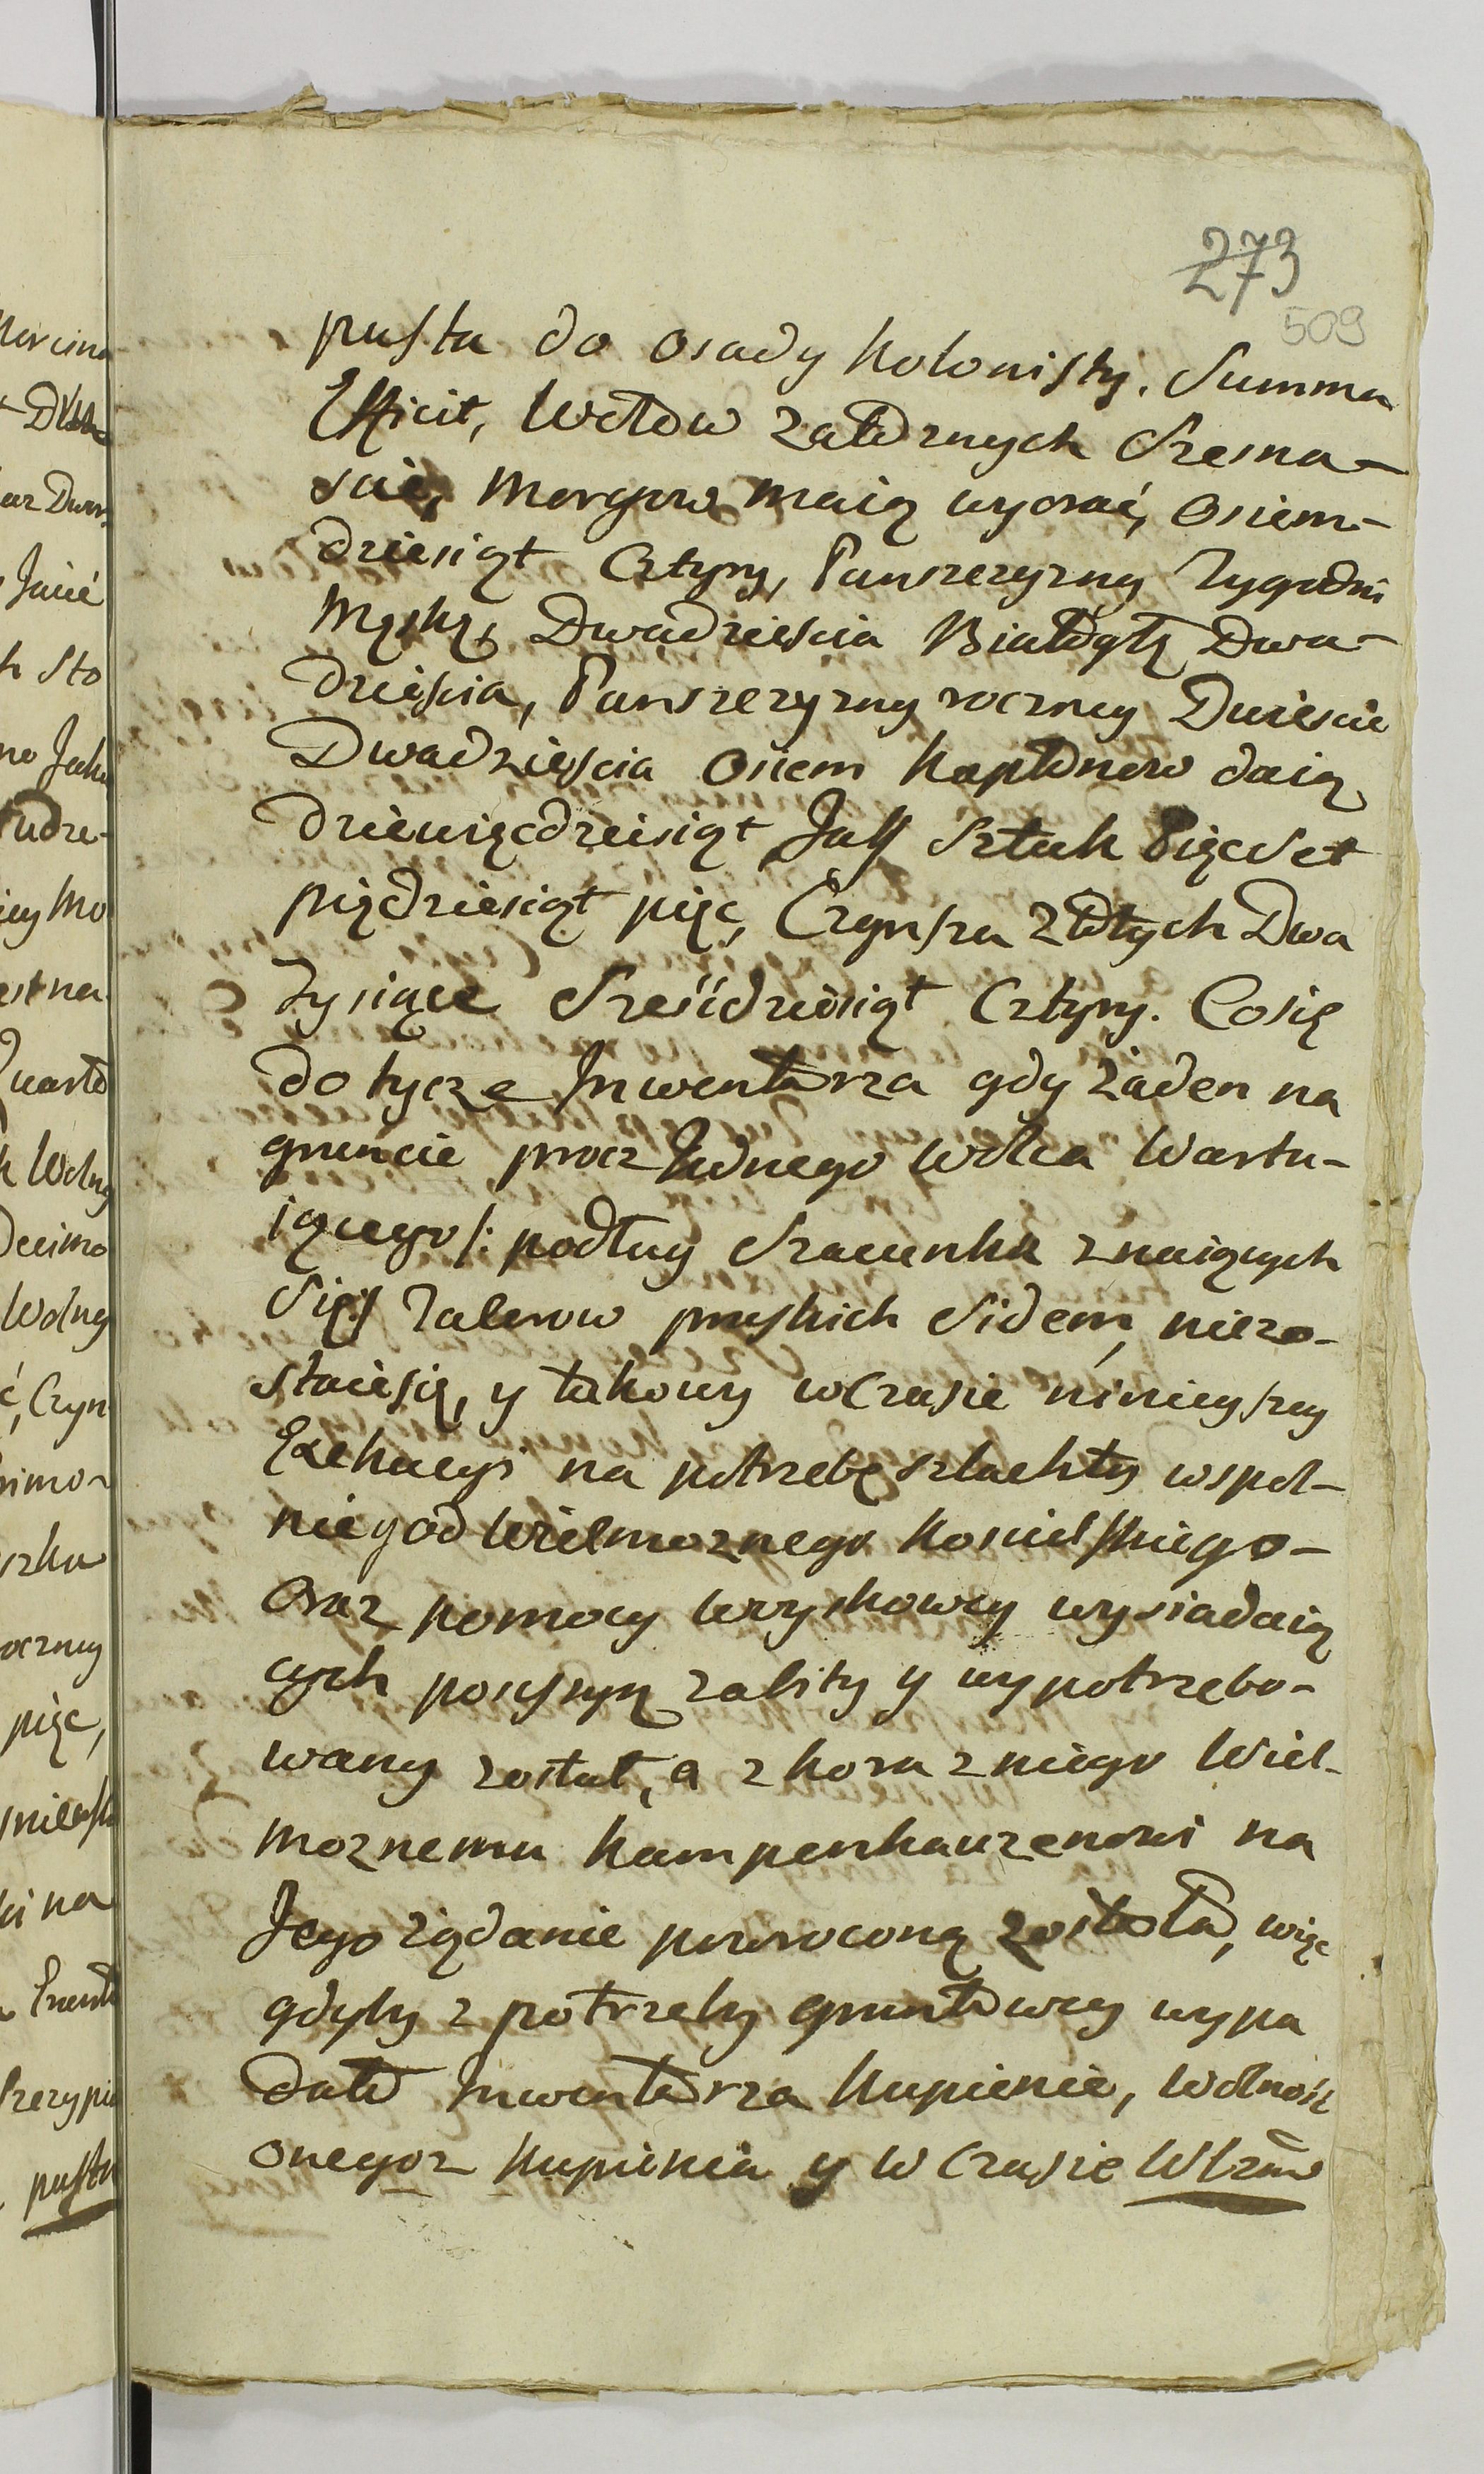 273
509
pusta do osady kolonisty. Summa
Efficit, Wołow załoznych Szesna-
scie, Morgow maią wyorać, osiem-
dziesiąt Cztyry, Panszczyzny Tygodni
Męską Dwadziescia Białogłą Dwa-
dziescia, Panszczyzny roczney Dwiescie
Dwadziescia osiem kapłonow daią
dziewięcdziesiąt Jay sztuk Pięcset
pięcdziesiąt pięc, Czynszu złotych Dwa
Tysiące Szesćdziesiąt Cztyry. Co się
do tycze Inwentarza gdy żaden na
gruncie procz Jednego Wołca Wartu-
iącego /: podług Szacunku znaiących
się :/ Talerow pruskich siedem, niezo-
staie się, y takowy w Czasie ninieyszey
Exekucyi na potrzebę szlachty wspol-
nie y od Wielmoznego Koscielskiego-
oraz pomocy woyskowey wysiadaią
cych posesyą zabity y wypotrzebo-
wany został, a skora z niego Wiel-
moznemu kampenhauzenowi na
Jego ządanie powrocona została, więc
gdyby z potrzeby gruntowey wypa
dało Inwentarza kupienie, Wolność
onegoz kupienia y w Czasie